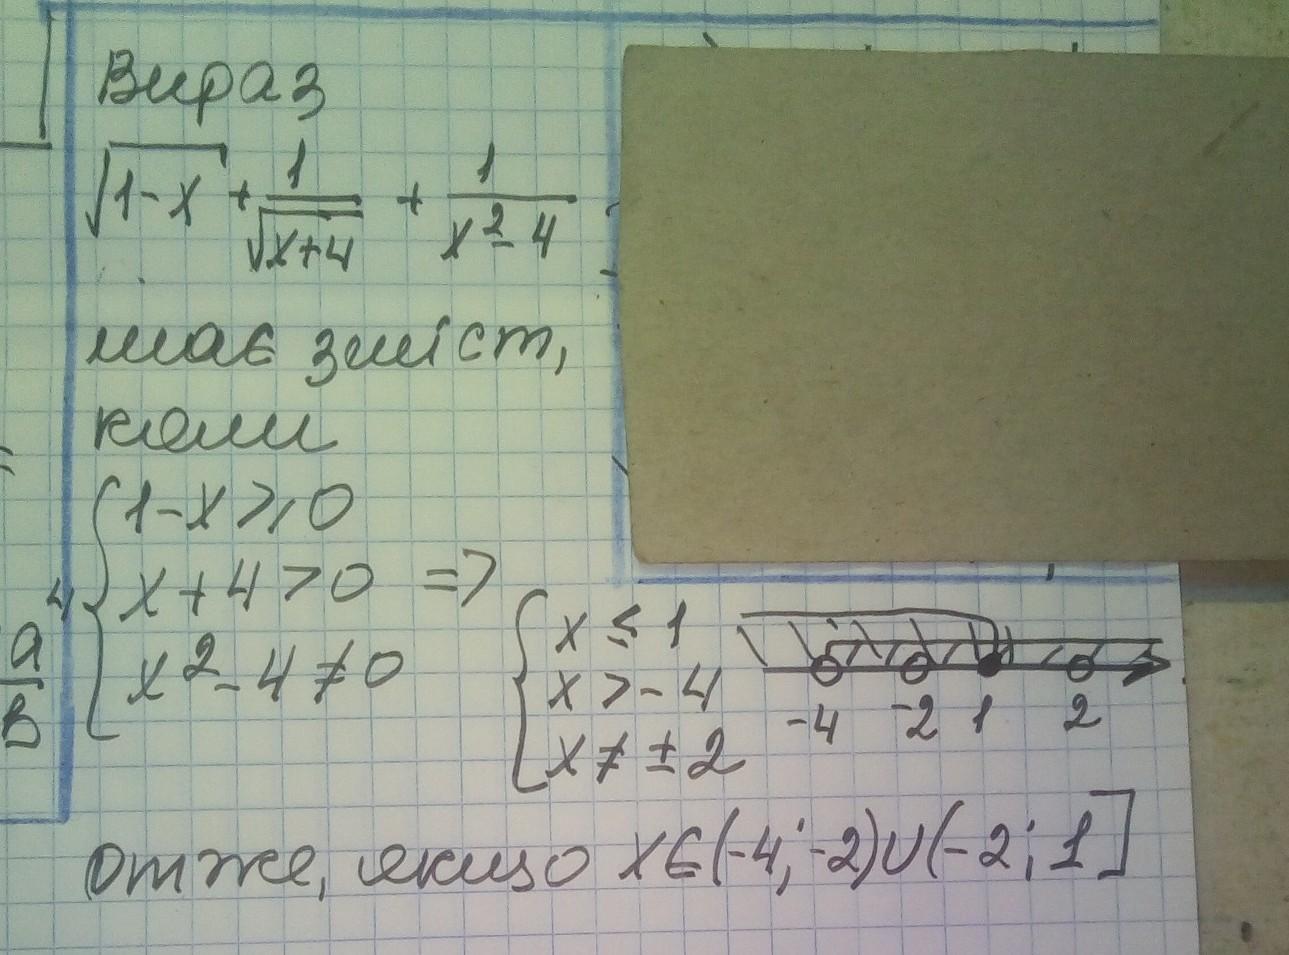 Вираз
√(1-x) + 1/√(x+4) + 1/(x²-4)
має зміст,
коли
{ 1-x ≥ 0
x+4 > 0 =>
x²-4 ≠ 0
{ x ≤ 1
x > -4
x ≠ ±2
-4 -2 1 2
отже, якщо x∈(-4;-2)∪(-2;1]
a/в